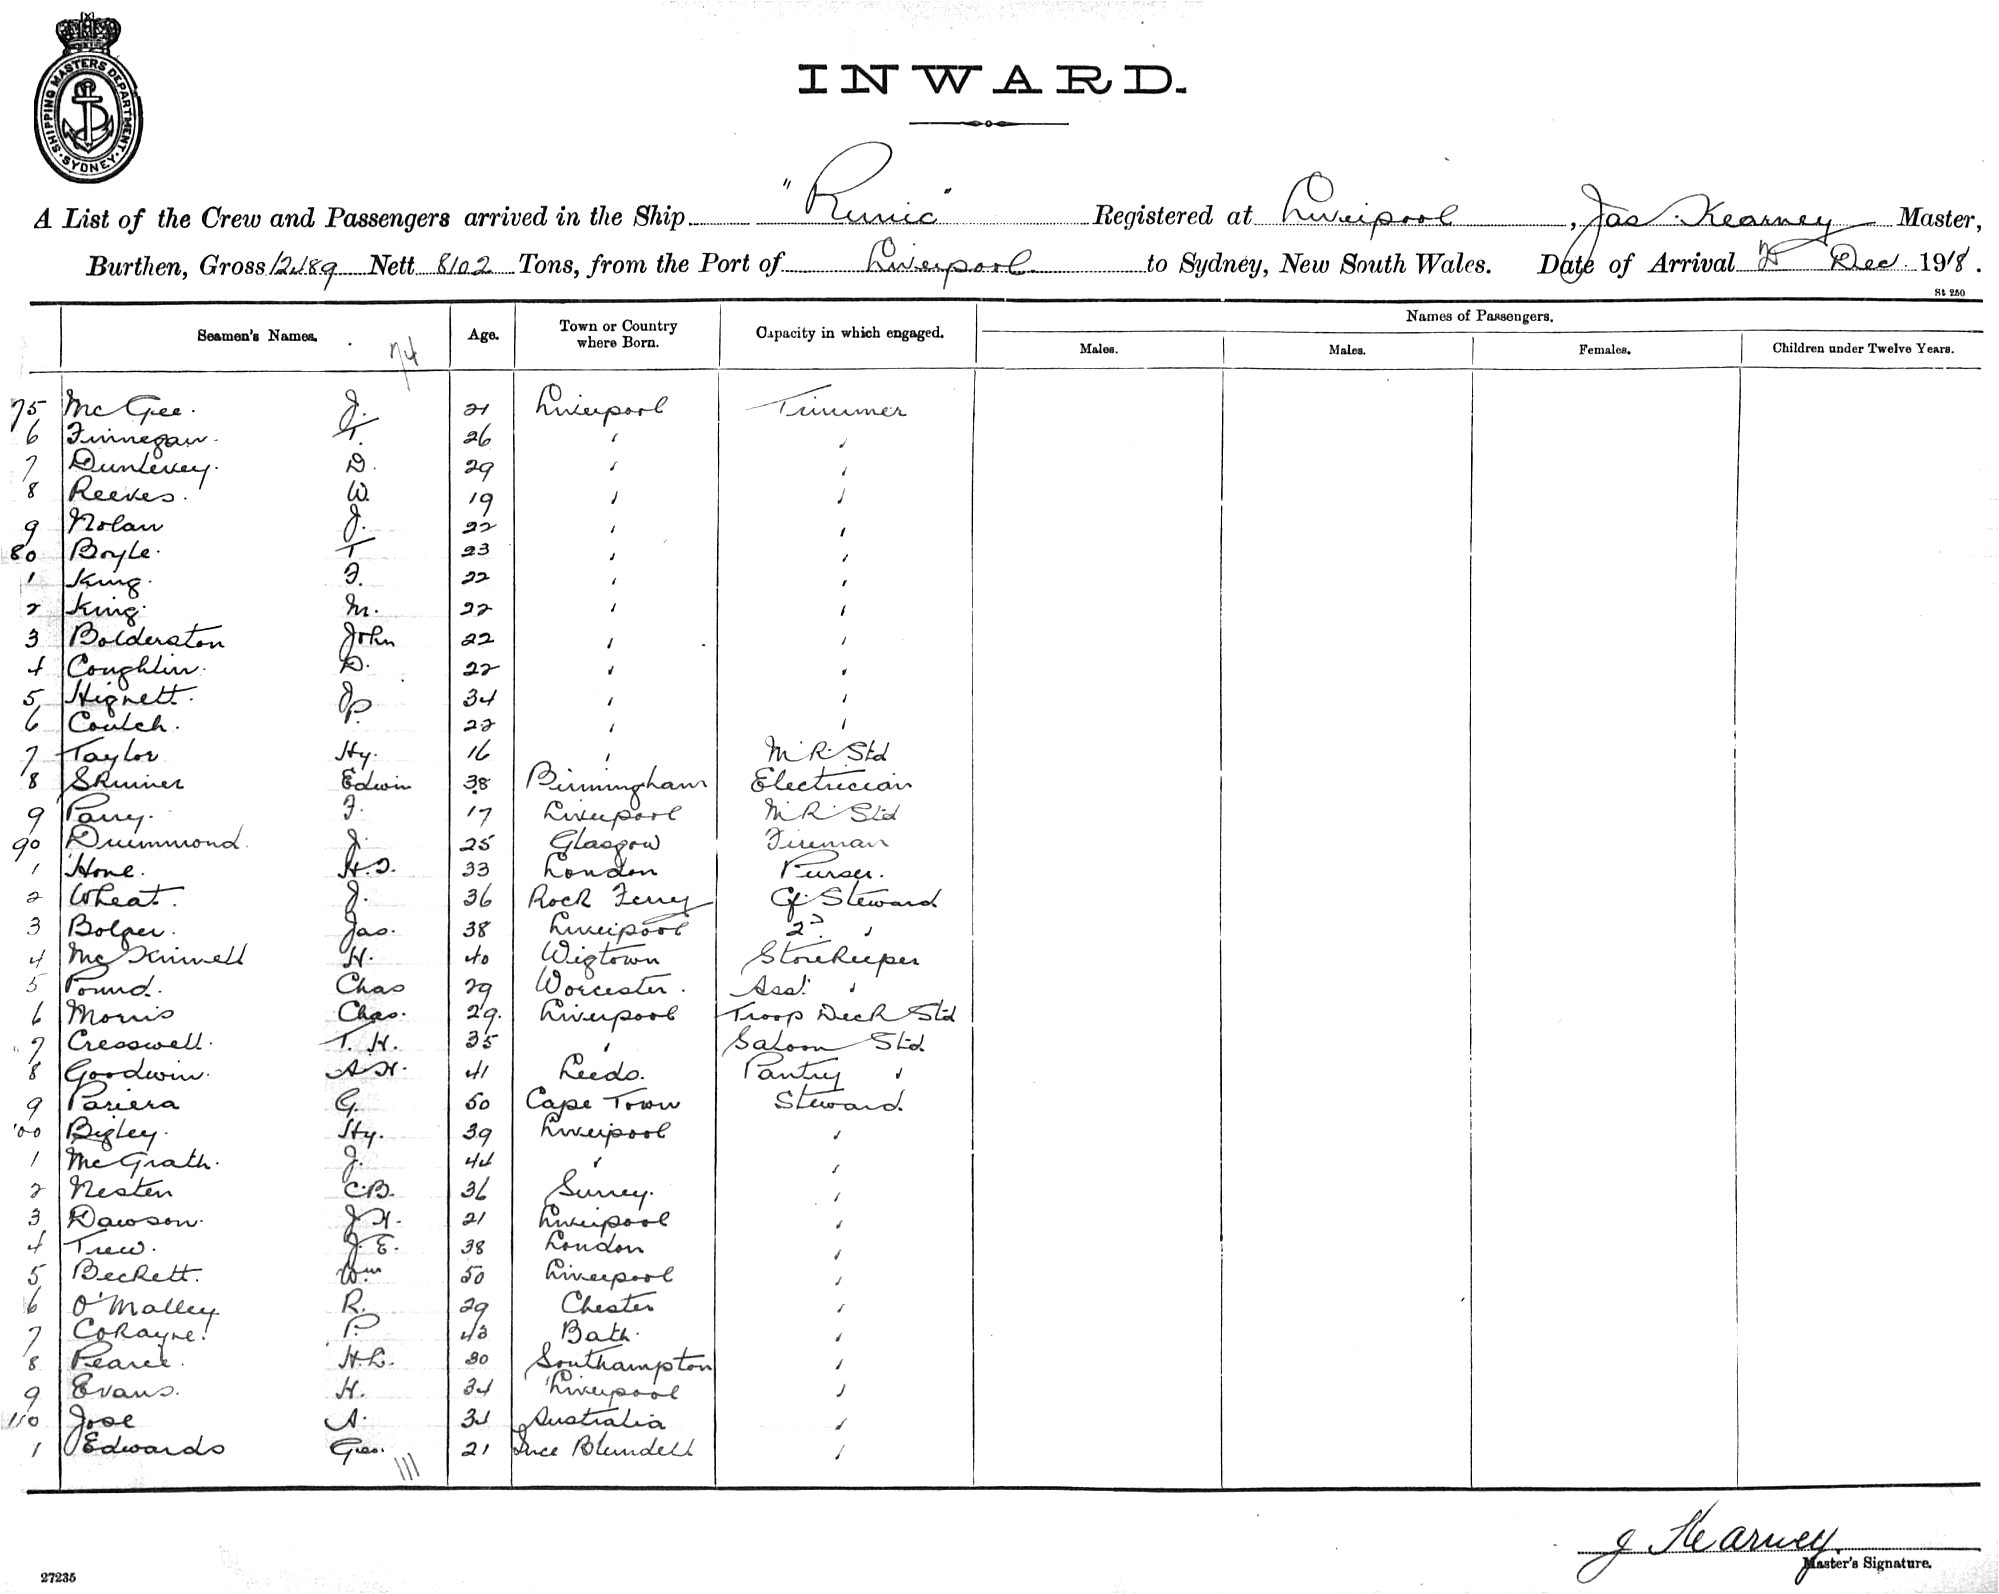 SHIPPING MASTERS DEPARTMENT SYDNEY
INWARD.
A List of the Crew and Passengers arrived in the Ship "Runic" Registered at Liverpool, Jas. Kearney Master,
Burthen, Gross 12489 Nett 8102 Tons, from the Port of Liverpool to Sydney, New South Wales. Date of Arrival Dec. 1918.
St 250
Seamen's Names. 74 Age. Town or Country where Born. Capacity in which engaged. Names of Passengers.
Males. Males. Females. Children under Twelve Years.
75 McGee. J. 21 Liverpool Trimmer
6 Finnegan. T. 26 " "
7 Dunlevey. D. 29 " "
8 Reeves. W. 19 " "
9 Nolan J. 22 " "
80 Boyle. T 23 " "
1 King. F. 22 " "
2 King. M. 22 " "
3 Bolderston John 22 " "
4 Coughlin. D. 22 " "
5 Hignett. J. 34 " "
6 Coulch. P. 22 " "
7 Taylor Hy. 16 " M. R. Std
8 Skinner Edwin 38 Birmingham Electrician
9 Parry. F. 17 Liverpool M. R. Std
90 Drummond. J. 25 Glasgow Fireman
1 Hone. 33 London Purser.
2 Wheat. J. 36 Rock Ferry Cf. Steward
3 Bolger. Jas. 38 Liverpool 2d. "
4 McKinnell H. 40 Wigtown Storekeeper
5 Pound. Chas 29 Worcester. Asst. "
6 Morris Chas. 29. Liverpool Troop Deck Std
7 Cresswell. T. H. 35 " Saloon Std.
8 Goodwin. A H. 41 Leeds. Pantry "
9 Pariera G. 50 Cape Town Steward.
100 Bigley. Hy. 39 Liverpool "
1 McGrath. J. 44 " "
2 Nesten C.B. 36 Surrey. "
3 Dawson. J H. 21 Liverpool "
4 Trew. J. E. 38 London "
5 Beckett. Wm 50 Liverpool "
6 O'Malley R. 29 Chester "
7 CoRayne. P. 43 Bath. "
8 Pearce. H.L. 30 Southampton "
9 Evans. H. 34 Liverpool "
110 Jose A. 34 Australia "
1 Edwards Geo. 21 Ince Blundell "
111
J Kearney.
Master's Signature.
27235